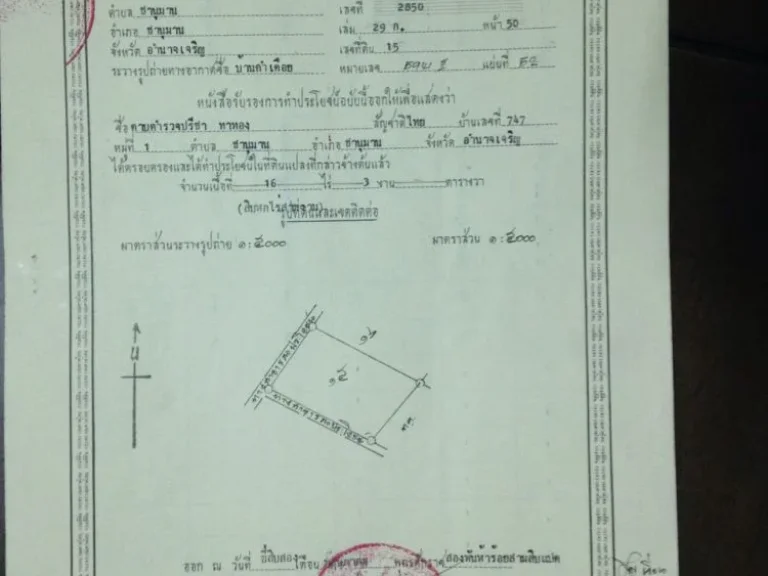 ตำบล ชานุมาน เลขที่ 2850
อำเภอ ชานุมาน เล่ม 29 ก. หน้า 50
จังหวัด อำนาจเจริญ เลขที่ดิน 15
ระวางรูปถ่ายทางอากาศชื่อ บ้านคำเดือย หมายเลข แผ่นที่ ๕๔
หนังสือรับรองการทำประโยชน์ฉบับนี้ออกให้เพื่อแสดงว่า
ชื่อ ดาบตำรวจปรีชา ทาทอง สัญชาติ ไทย บ้านเลขที่ 747
หมู่ที่ 1 ตำบล ชานุมาน อำเภอ ชานุมาน จังหวัด อำนาจเจริญ
ได้ครอบครองและได้ทำประโยชน์ในที่ดินแปลงที่กล่าวข้างต้นแล้ว
จำนวนเนื้อที่ 16 ไร่ 3 งาน ตารางวา
(สิบหกไร่สามงาน)
รูปที่ดินและเขตติดต่อ
มาตราส่วนระวางรูปถ่าย ๑ : ๕๐๐๐ มาตราส่วน ๑ : ๕๐๐๐
น
๑๕
ทางสาธารณประโยชน์
ทางสาธารณประโยชน์
ออก ณ วันที่ ยี่สิบสอง เดือน พุทธศักราช สองพันห้าร้อยสามสิบแปด